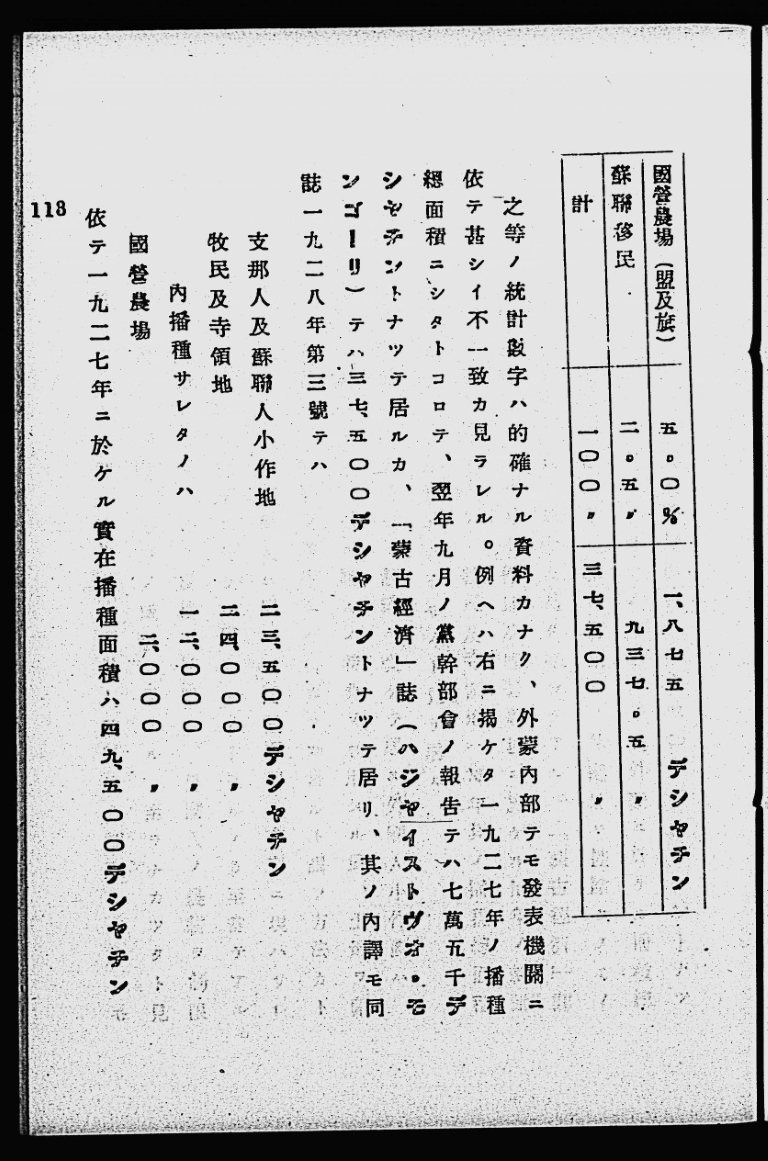 國營農場（盟及旗）　五。〇％　一、八七五　デシャチン
蘇聯移民　二。五〃　九三七。五　〃
計　一〇〇〃　三七、五〇〇　〃
之等ノ統計數字ハ的確ナル資料カナク、外蒙內部テモ發表機關ニ
依テ甚シイ不一致カ見ラレル。例ヘハ右ニ揭ケタ一九二七年ノ播種
總面積ニシタトコロテ、翌年九月ノ黨幹部會ノ報告テハ七萬五千デ
シャチントナツテ居ルカ、「蒙古經濟」誌（ハジャイストヴオ。モ
ンゴーリ）テハ三七、五〇〇デシャチントナツテ居リ、其ノ內譯モ同
誌一九二八年第三號テハ
支那人及蘇聯人小作地　二三、五〇〇デシャチン
牧民及寺領地　二四、〇〇〇　〃
內播種サレタノハ　一二、〇〇〇　〃
國營農場　二、〇〇〇　〃
依テ一九二七年ニ於ケル實在播種面積ハ四九、五〇〇デシャチン
113